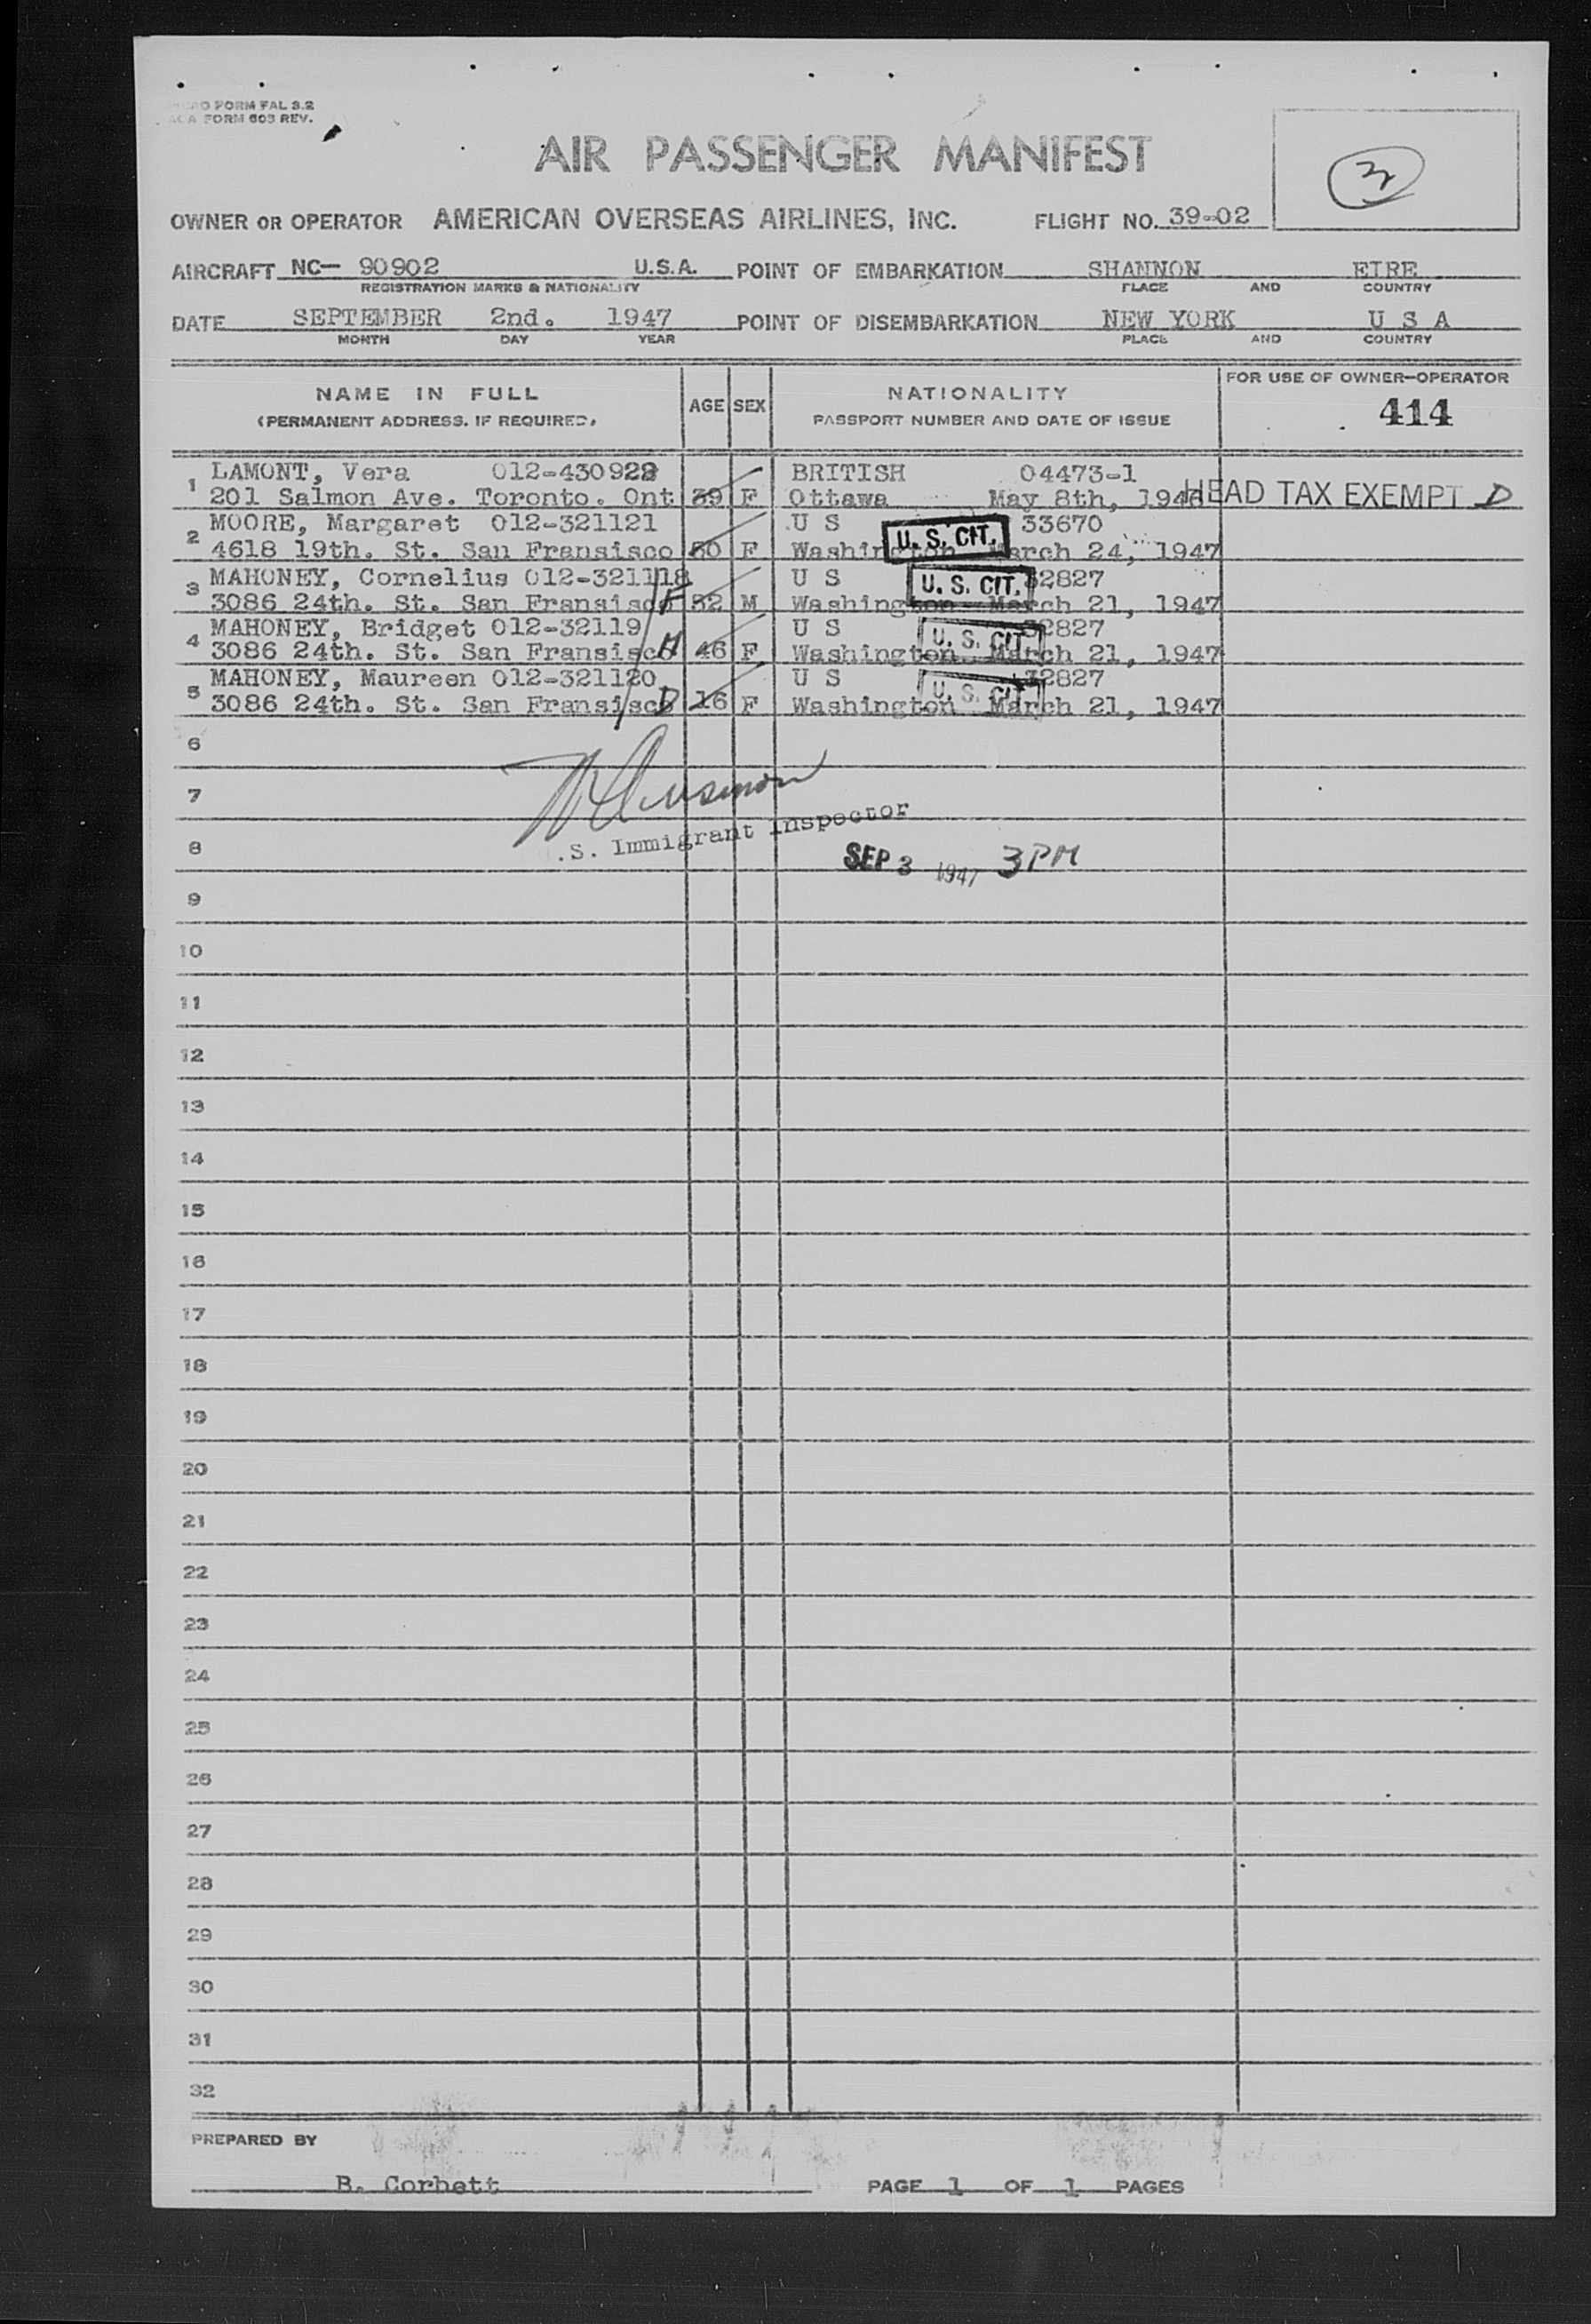 FORM FAL 3.2
FORM 603 REV.
AIR PASSENGER MANIFEST
OWNER OR OPERATOR AMERICAN OVERSEAS AIRLINES, INC. FLIGHT NO. 39-02
AIRCRAFT NC- 90902 U.S.A. POINT OF EMBARKATION SHANNON EIRE
REGISTRATION MARKS & NATIONALITY PLACE AND COUNTRY
DATE SEPTEMBER 2nd. 1947 POINT OF DISEMBARKATION NEW YORK U S A
MONTH DAY YEAR PLACE AND COUNTRY
NAME IN FULL AGE SEX NATIONALITY FOR USE OF OWNER-OPERATOR
(PERMANENT ADDRESS, IF REQUIRED) PASSPORT NUMBER AND DATE OF ISSUE 414
1 LAMONT, Vera 012-430922 BRITISH 04473-1
201 Salmon Ave. Toronto. Ont 39 F Ottawa May 8th, 1946 HEAD TAX EXEMPT D
2 MOORE, Margaret 012-321121 U S 33670
4618 19th. St. San Fransisco 50 F Washington U. S. CIT. March 24, 1947
3 MAHONEY, Cornelius 012-321118 U S U. S. CIT. 32827
3086 24th. St. San Fransisco F 52 M Washington March 21, 1947
4 MAHONEY, Bridget 012-32119 U S 32827
3086 24th. St. San Fransisco M 46 F Washington U. S. CIT March 21, 1947
5 MAHONEY, Maureen 012-321120 U S 32827
3086 24th. St. San Fransisco D 16 F Washington U. S. CIT March 21, 1947
6
7
8 .S. Immigrant Inspector
SEP 3 1947 3 PM
9
10
11
12
13
14
15
16
17
18
19
20
21
22
23
24
25
26
27
28
29
30
31
32
PREPARED BY
B. Corbett PAGE 1 OF 1 PAGES